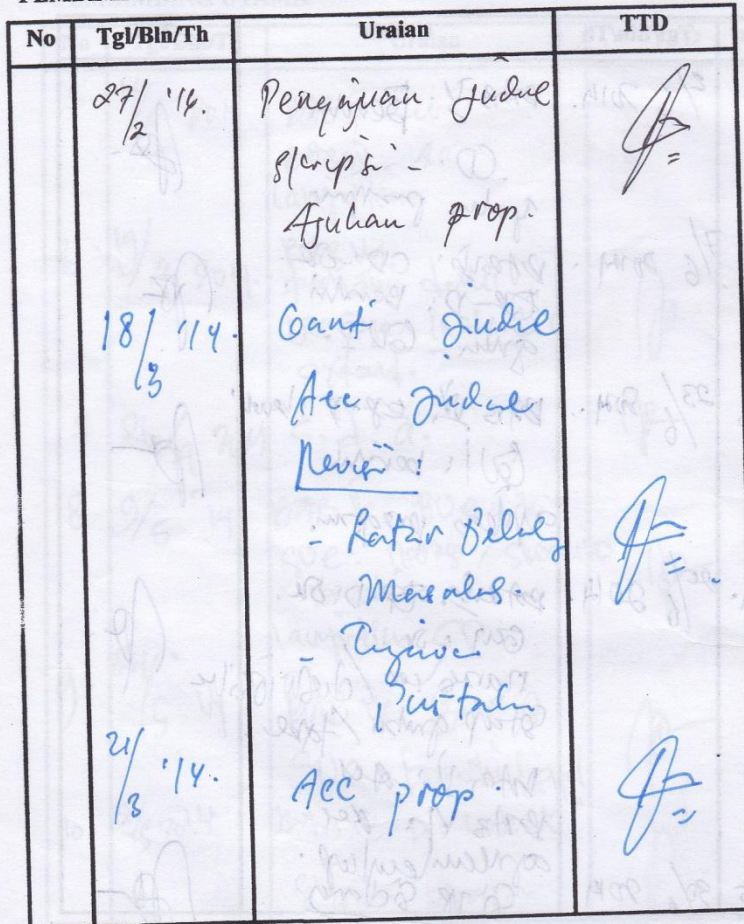 No Tgl/Bln/Th Uraian TTD
27/2 '14. Pengajuan Judul
Skripsi -
Ajukan prop.
18/3 '14. Ganti Judul
Acc Judul
Revisi :
- Latar Belakg
Masalah.
- Tinjauan
Pustaka
21/3 '14. Acc prop.